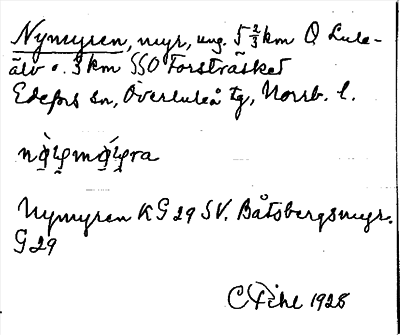 Nymyren, myr, ung. 5 2/3 km O Lule-
älv o. 3 km SSO Forsträsket
Edefors sn, Överluleå tg, Norrb. l.
Nymyren KG 29 SV. Båtsbergsmyr.
G 29
C Fihl 1928